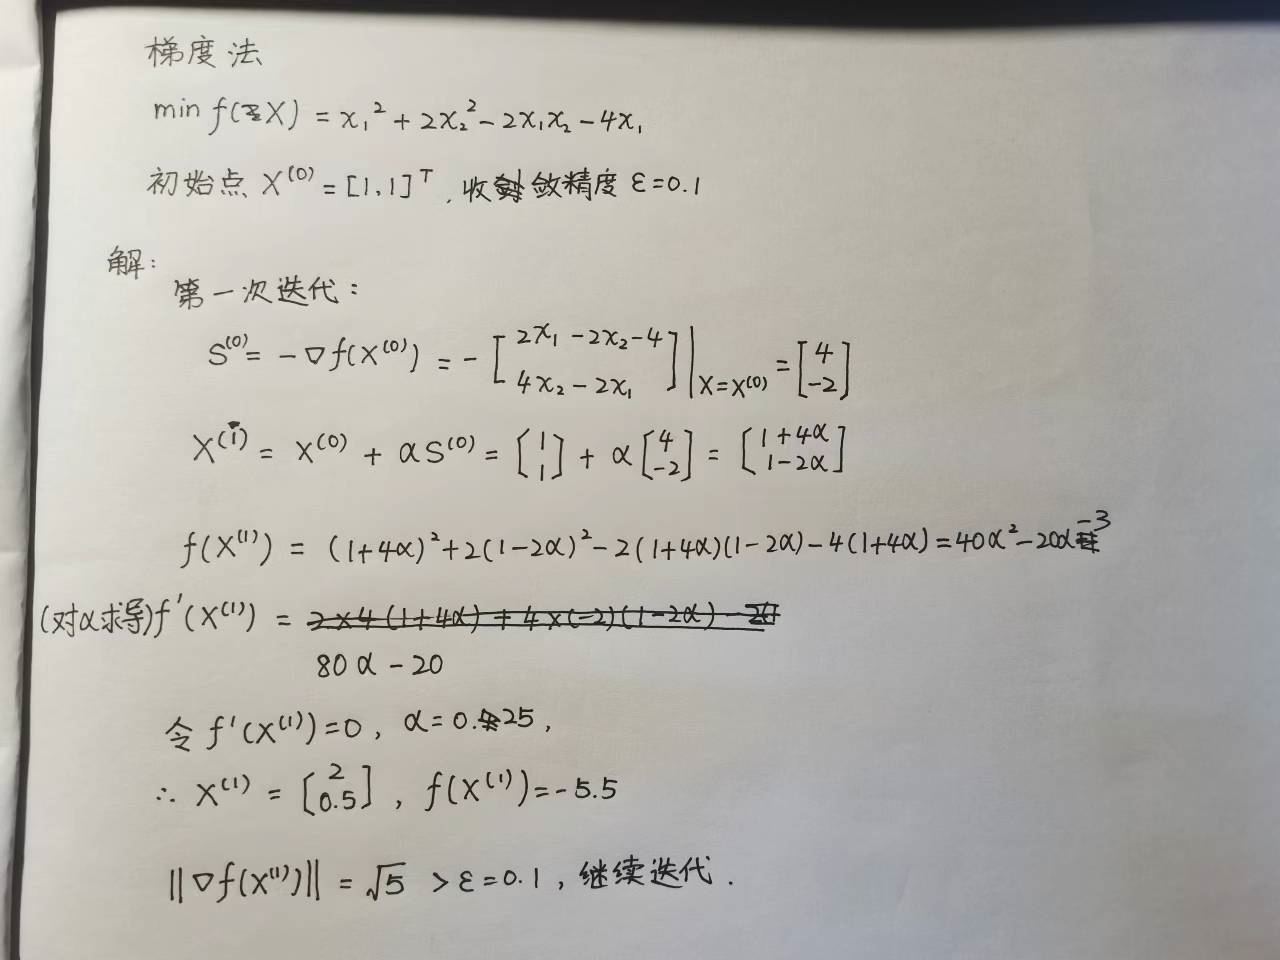 梯度法
min f(X) = x₁² + 2x₂² - 2x₁x₂ - 4x₁
初始点 X⁽⁰⁾ = [1,1]ᵀ, 收敛精度 ε=0.1
解:
第一次迭代:
S⁽⁰⁾ = -∇f(X⁽⁰⁾) = -[2x₁ - 2x₂ - 4; 4x₂ - 2x₁]|X=X⁽⁰⁾ = [4; -2]
X⁽¹⁾ = X⁽⁰⁾ + αS⁽⁰⁾ = [1; 1] + α[4; -2] = [1+4α; 1-2α]
f(X⁽¹⁾) = (1+4α)² + 2(1-2α)² - 2(1+4α)(1-2α) - 4(1+4α) = 40α² - 20α - 3
(对α求导) f'(X⁽¹⁾) = 2×4(1+4α) + 4×(-2)(1-2α)
80α - 20
令 f'(X⁽¹⁾)=0, α=0.25,
∴ X⁽¹⁾ = [2; 0.5], f(X⁽¹⁾) = -5.5
||∇f(X⁽¹⁾)|| = √5 > ε=0.1, 继续迭代.